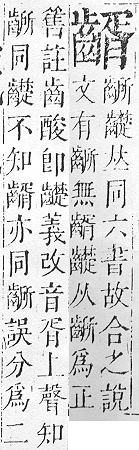 齭齼𠀤同六書故合之說
文有齭無齼从齭爲正
舊註齒酸卽齼義改音胥上聲知
齭同齼不知亦同齭誤分爲二